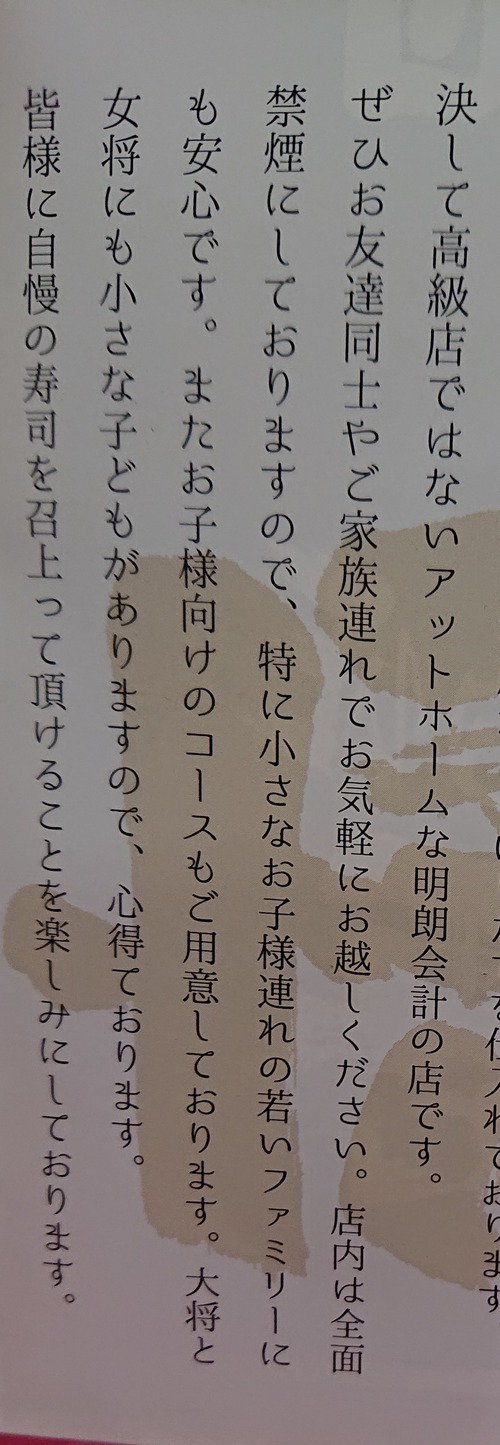 を仕入れております
決して高級店ではないアットホームな明朗会計の店です。
ぜひお友達同士やご家族連れでお気軽にお越しください。店内は全面
禁煙にしておりますので、特に小さなお子様連れの若いファミリーに
も安心です。またお子様向けのコースもご用意しております。大将と
女将にも小さな子どもがありますので、心得ております。
皆様に自慢の寿司を召上って頂けることを楽しみにしております。